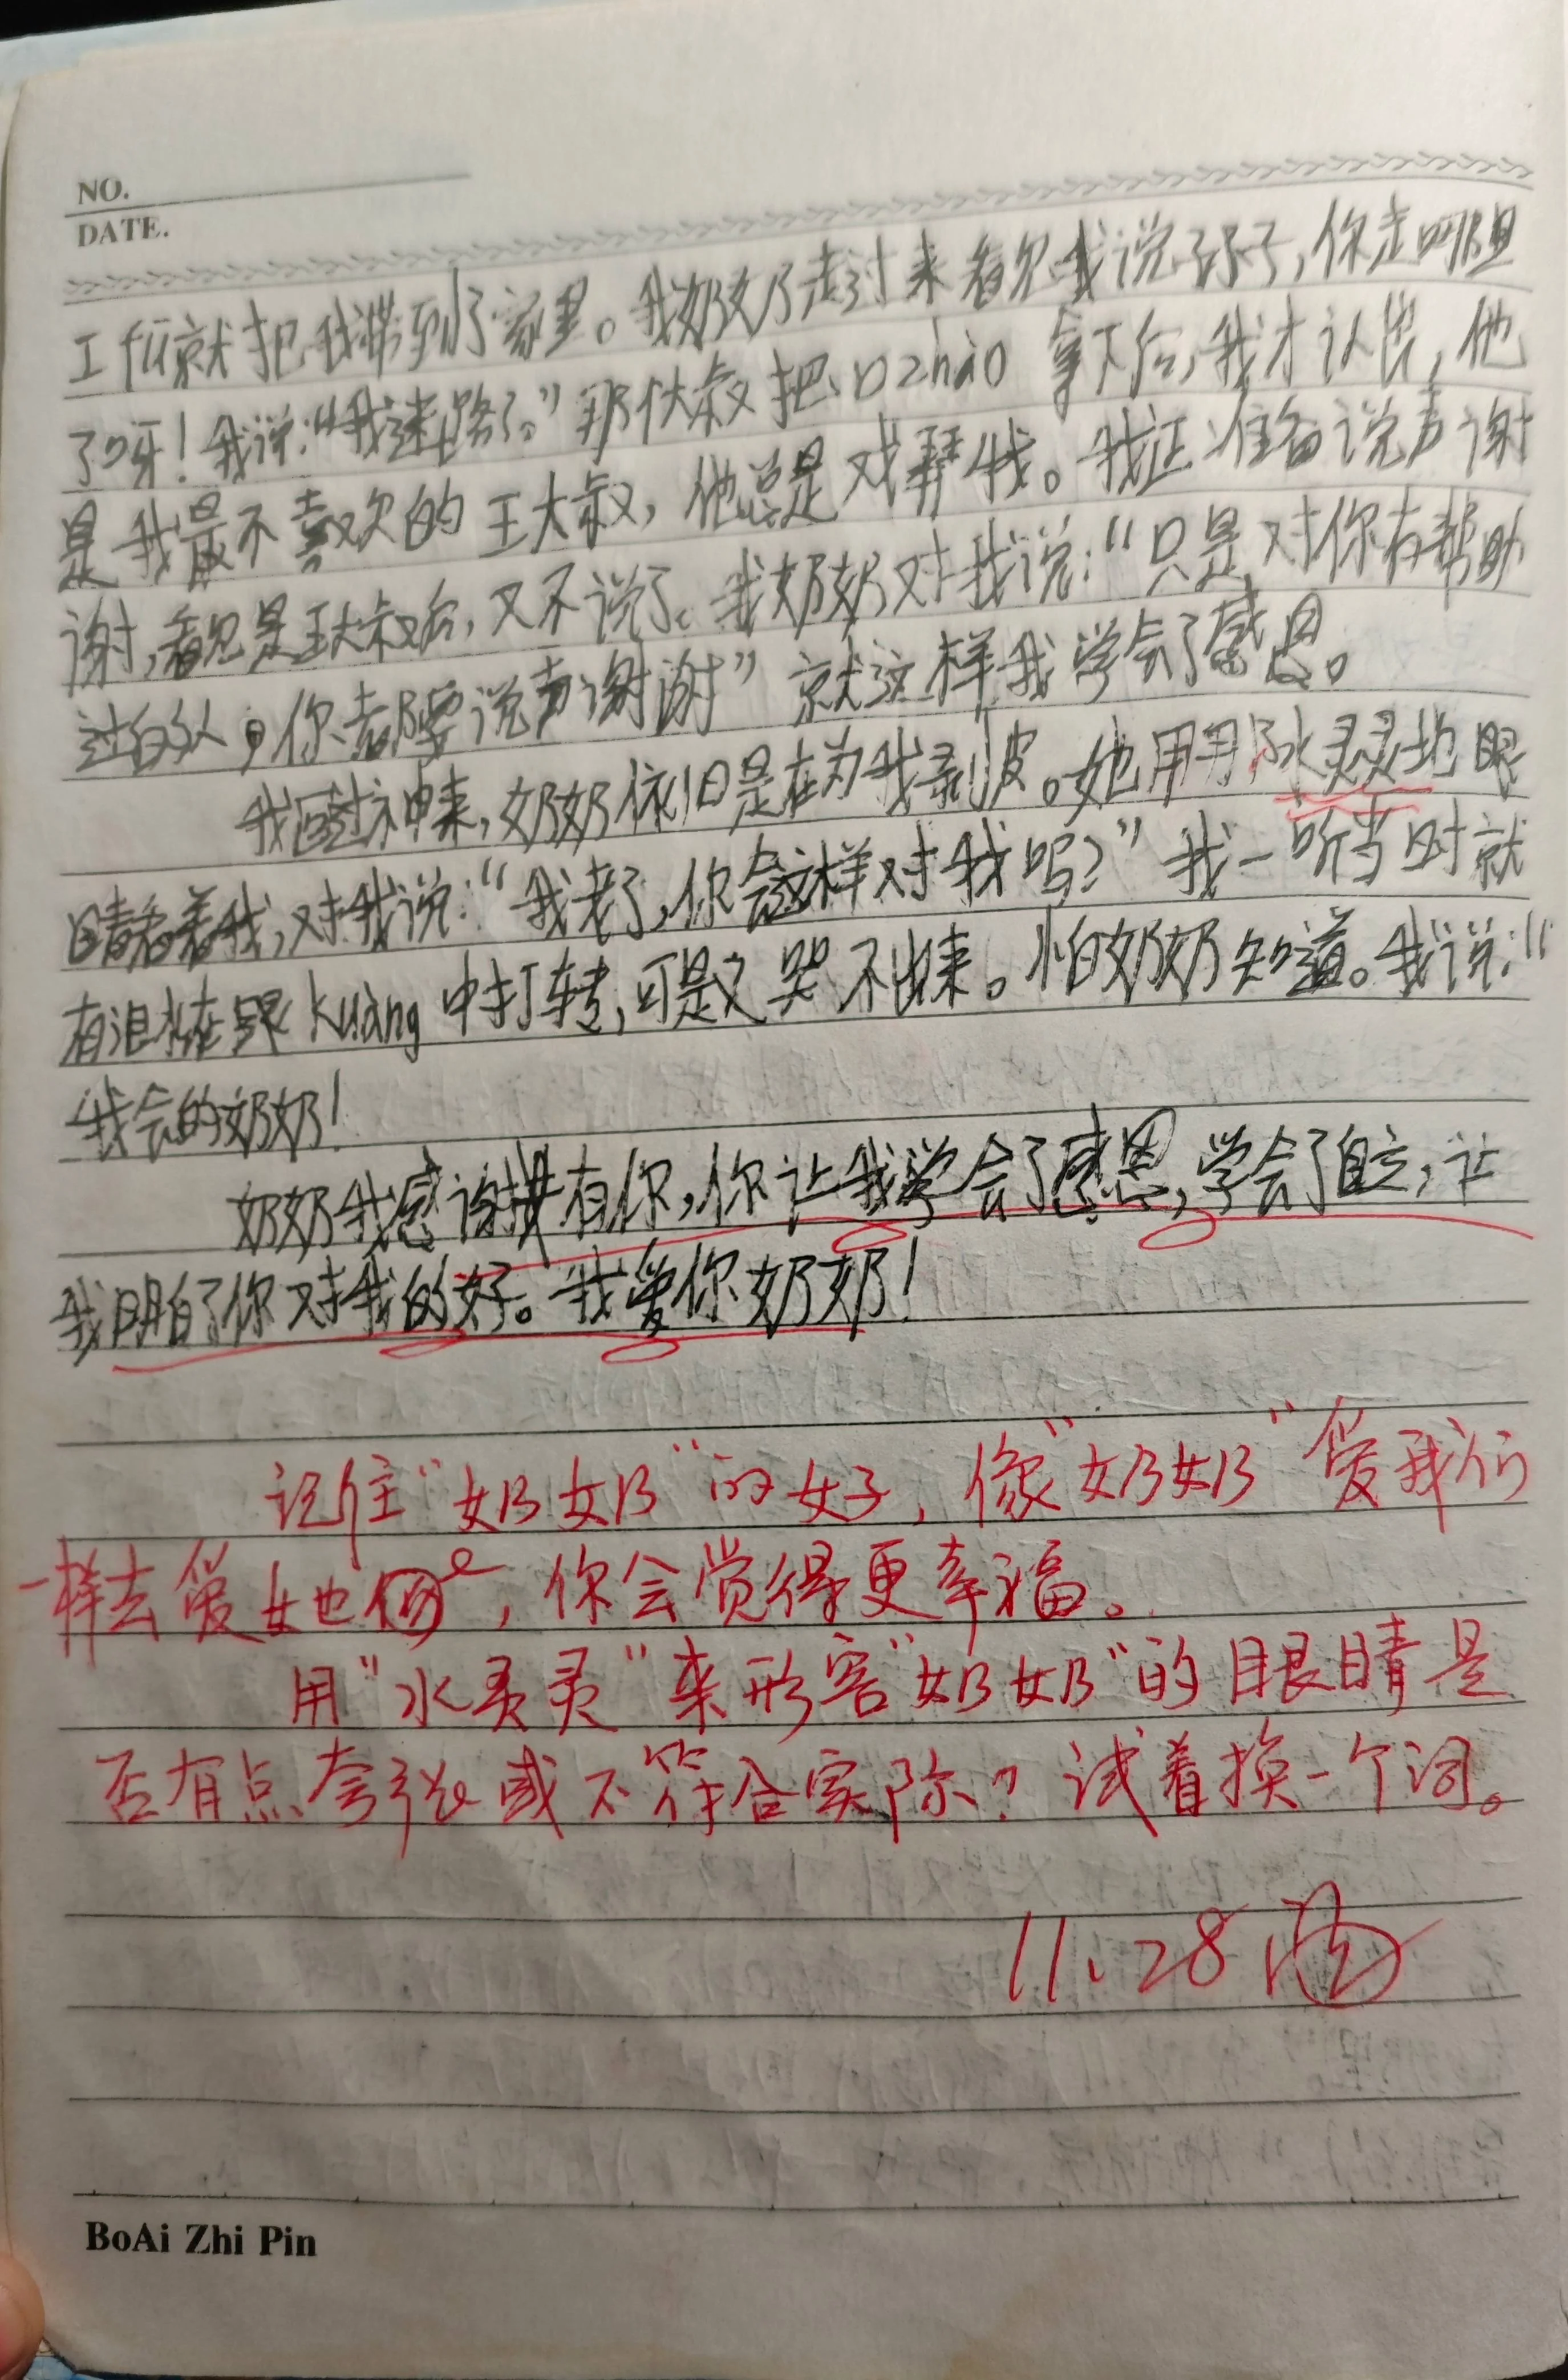 NO.
DATE.
就把我带到了家里。我奶奶走过来看见我说孙子,你走哪
了呀!我说:“我迷路了。”那位大叔把口zhào 拿下后,我才认出,他
是我最不喜欢的王大叔,他总是戏弄我。我正准备说声谢
谢,看见是王大叔后,又不说了。我奶奶对我说:“只是对你有帮助
过的人,你都要说声谢谢”就这样我学会了感恩。
我回过神来,奶奶依旧是在为我剥皮。她用水灵灵地眼
睛看着我,对我说:“我老了,你会这样对我吗?”我一听当时就
有泪水在眼kuàng 中打转,可是又哭不出来。怕奶奶知道。我说:“
我会的奶奶!
奶奶我感谢有你,你让我学会了感恩,学会了自立,让
我明白了你对我的好。我爱你奶奶!
记住“奶奶”的好,像“奶奶”爱我们
一样去爱她,你会觉得更幸福。
用“水灵灵”来形容“奶奶”的眼睛是
否有点夸张或不符合实际?试着换一个词。
11.28
BoAi Zhi Pin